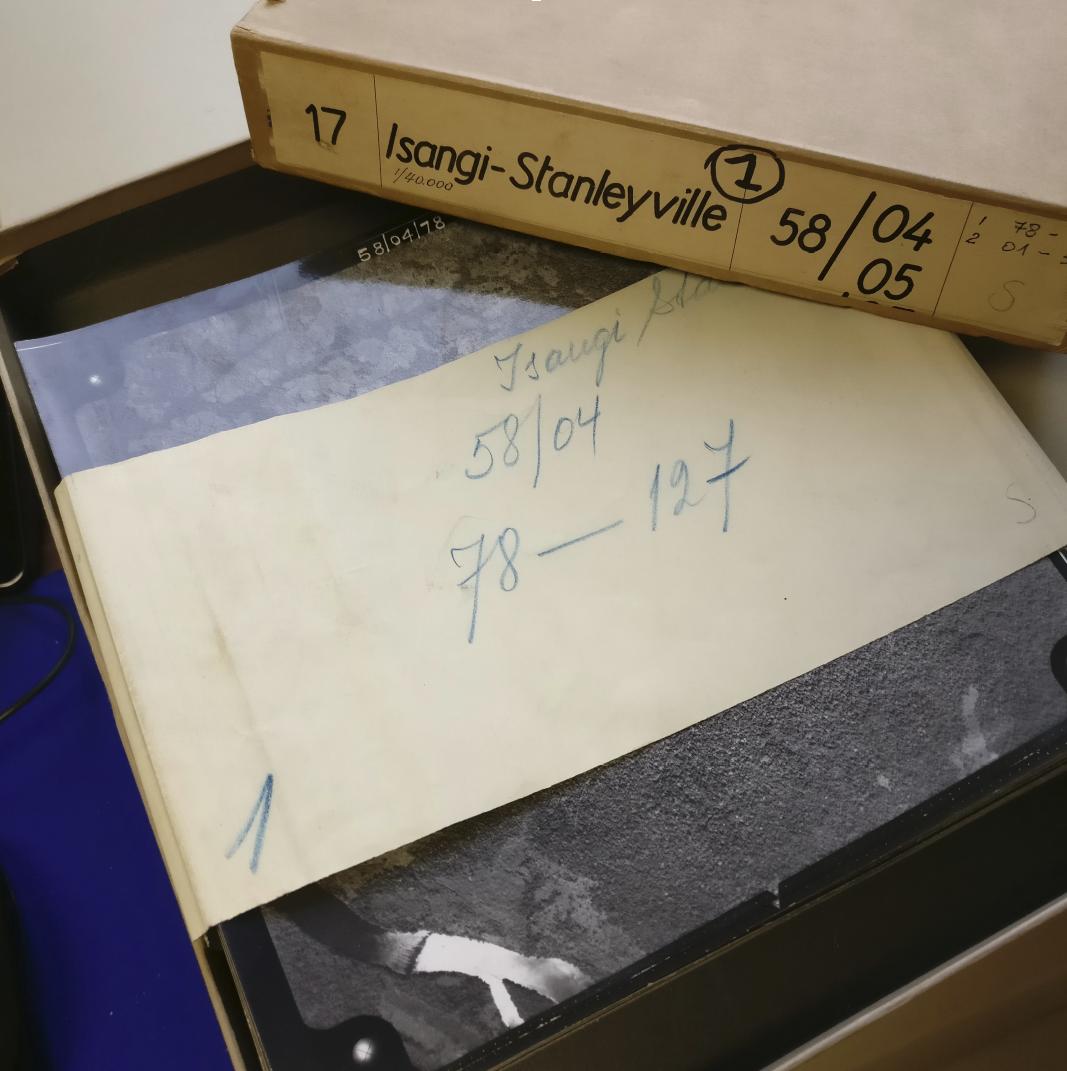 17 Isangi-Stanleyville 1 58/04
1/40.000
05
1 78 -
2 01 -
S
58/04/78
Isangi
58/04
78 — 127
S
1